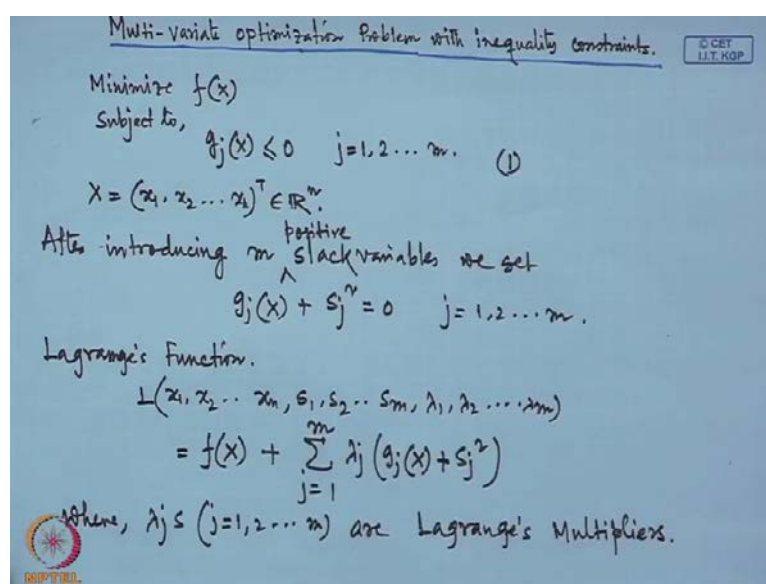 Multi-variate optimization Problem with inequality constraints.
© CET
I.I.T. KGP
Minimize f(x)
Subject to,
gj(x) ≤ 0 j=1,2...m. (1)
X = (x1, x2 ... xn)^T ∈ ℝ^n.
After introducing m positive slack variables we get
gj(x) + sj^2 = 0 j=1,2...m.
Lagrange's Function.
L(x1, x2 .. xn, s1, s2 .. sm, λ1, λ2 .... λm)
= f(x) + ∑_{j=1}^{m} λj (gj(x) + sj^2)
where, λjs (j=1,2...m) are Lagrange's Multipliers.
NPTEL